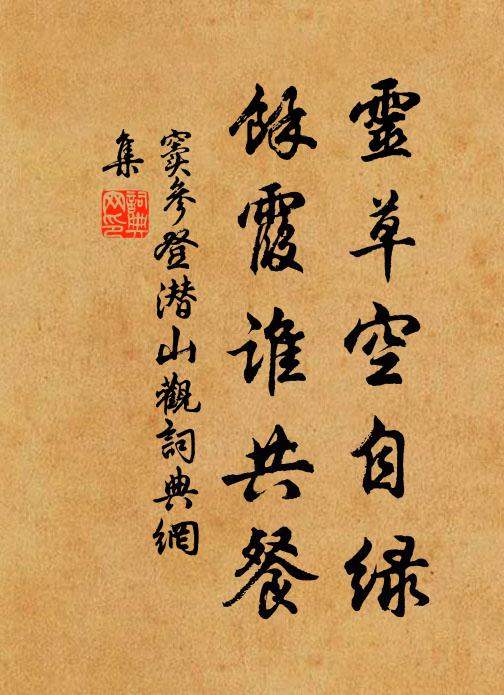 靈草空自緑
餘霞誰共餐
竇參登潜山觀詞典網
集
詞典
网印